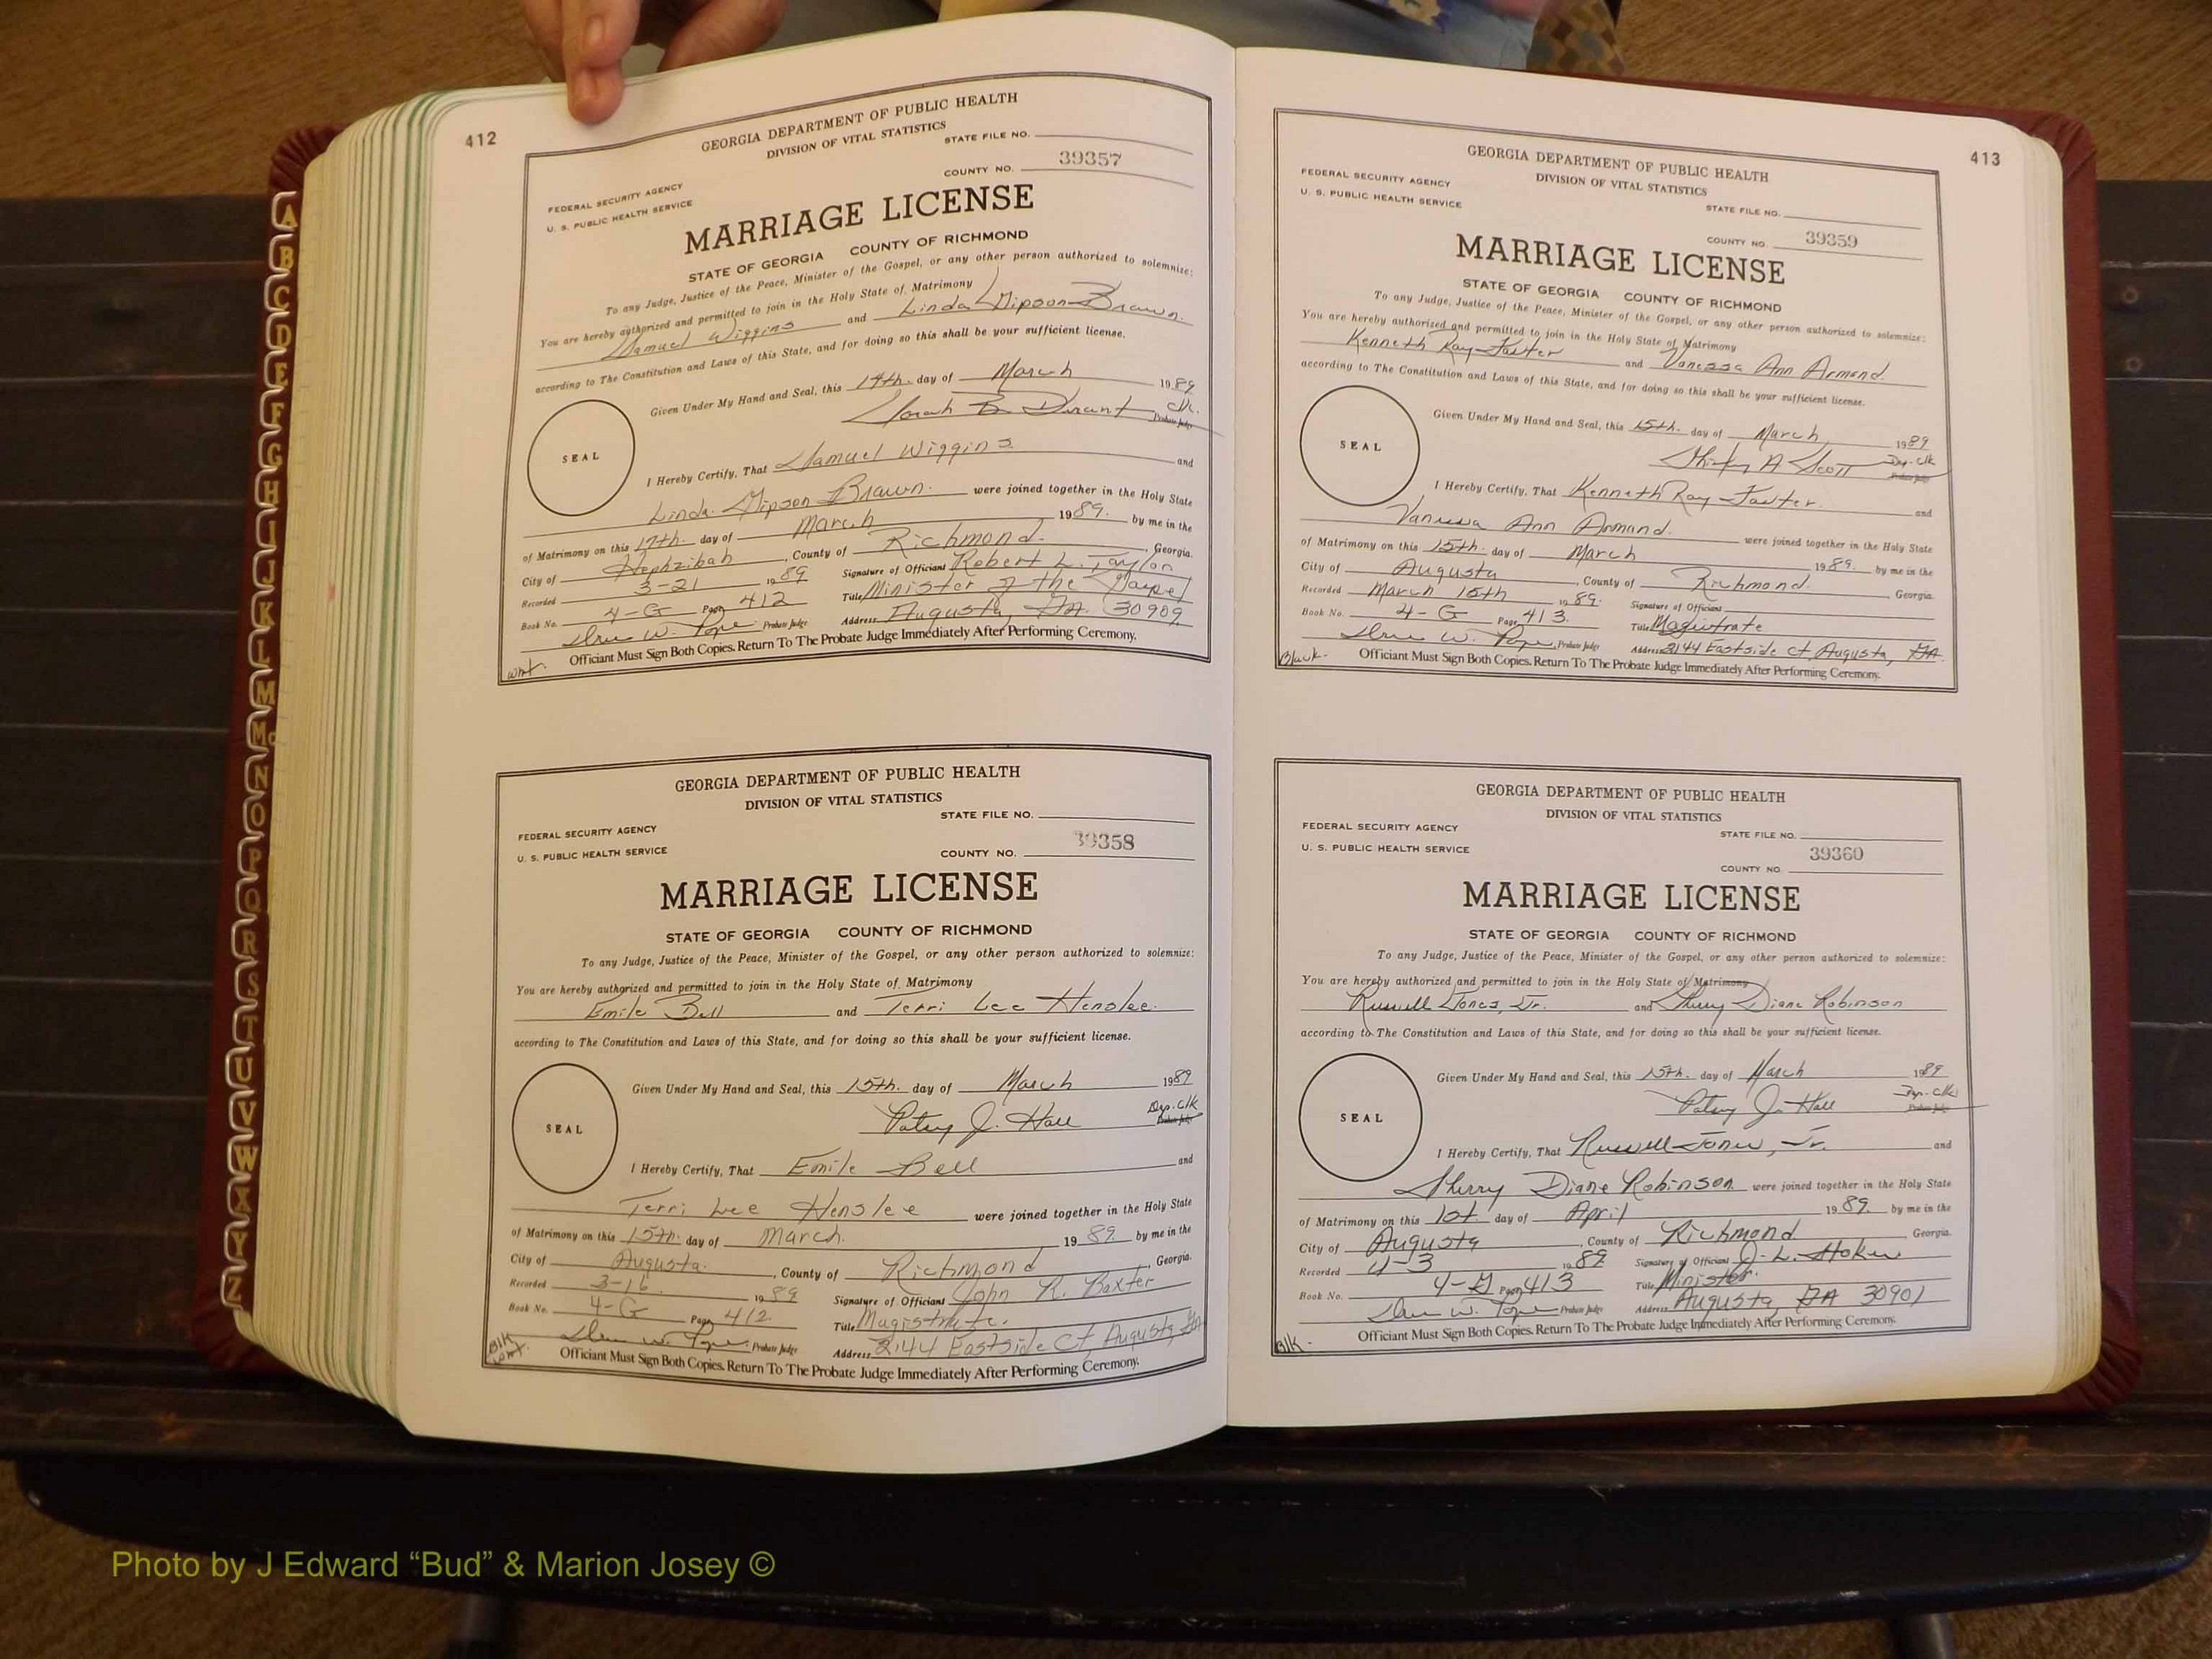 412
GEORGIA DEPARTMENT OF PUBLIC HEALTH
DIVISION OF VITAL STATISTICS
STATE FILE NO.
39357
COUNTY NO.
FEDERAL SECURITY AGENCY
U. S. PUBLIC HEALTH SERVICE
MARRIAGE LICENSE
STATE OF GEORGIA COUNTY OF RICHMOND
To any Judge, Justice of the Peace, Minister of the Gospel, or any other person authorized to solemnize:
You are hereby authorized and permitted to join in the Holy State of Matrimony
Samuel Wiggins and Linda Gipson Brawn.
according to The Constitution and Laws of this State, and for doing so this shall be your sufficient license.
Given Under My Hand and Seal, this 14th. day of March 1989
Clk.
Probate Judge
SEAL
I Hereby Certify, That Samuel Wiggins and
Linda Gipson Brawn. were joined together in the Holy State
of Matrimony on this 17th. day of March 1989. by me in the
City of Hephzibah, County of Richmond. Georgia.
Recorded 3-21 1989 Signature of Officiant Robert L. Taylor
Book No. 4-G Page 412 Title Minister of the Gospel
Probate Judge Address Augusta, GA. 30909
Officiant Must Sign Both Copies. Return To The Probate Judge Immediately After Performing Ceremony.
wht.
GEORGIA DEPARTMENT OF PUBLIC HEALTH
DIVISION OF VITAL STATISTICS
STATE FILE NO.
39358
COUNTY NO.
FEDERAL SECURITY AGENCY
U. S. PUBLIC HEALTH SERVICE
MARRIAGE LICENSE
STATE OF GEORGIA COUNTY OF RICHMOND
To any Judge, Justice of the Peace, Minister of the Gospel, or any other person authorized to solemnize:
You are hereby authorized and permitted to join in the Holy State of Matrimony
Emile Bell and Terri Lee Henslee.
according to The Constitution and Laws of this State, and for doing so this shall be your sufficient license.
Given Under My Hand and Seal, this 15th. day of March 1989
Patsy J. Hall Dep. Clk
Probate Judge
SEAL
I Hereby Certify, That Emile Bell and
Terri Lee Henslee were joined together in the Holy State
of Matrimony on this 15th. day of March. 1989. by me in the
City of Augusta. County of Richmond Georgia.
Recorded 3-16 1989 Signature of Officiant John R. Baxter
Book No. 4-G Page 412 Title Magistrate.
Probate Judge Address 2144 Eastside Ct, Augusta GA
Officiant Must Sign Both Copies. Return To The Probate Judge Immediately After Performing Ceremony.
Blk
wht.
413
GEORGIA DEPARTMENT OF PUBLIC HEALTH
DIVISION OF VITAL STATISTICS
STATE FILE NO.
39359
COUNTY NO.
FEDERAL SECURITY AGENCY
U. S. PUBLIC HEALTH SERVICE
MARRIAGE LICENSE
STATE OF GEORGIA COUNTY OF RICHMOND
To any Judge, Justice of the Peace, Minister of the Gospel, or any other person authorized to solemnize:
You are hereby authorized and permitted to join in the Holy State of Matrimony
Kenneth Ray and Vanessa Ann Armand.
according to The Constitution and Laws of this State, and for doing so this shall be your sufficient license.
Given Under My Hand and Seal, this 15th. day of March, 1989
Shirley A Scott Dep. Clk
Probate Judge
SEAL
I Hereby Certify, That Kenneth Ray and
Vanessa Ann Armand. were joined together in the Holy State
of Matrimony on this 15th. day of March 1989. by me in the
City of Augusta, County of Richmond. Georgia.
Recorded March 15th 1989. Signature of Officiant
Book No. 4-G Page 413. Title Magistrate
Probate Judge Address 2144 Eastside Ct, Augusta, GA.
Officiant Must Sign Both Copies. Return To The Probate Judge Immediately After Performing Ceremony.
Black-
GEORGIA DEPARTMENT OF PUBLIC HEALTH
DIVISION OF VITAL STATISTICS
STATE FILE NO.
39360
COUNTY NO.
FEDERAL SECURITY AGENCY
U. S. PUBLIC HEALTH SERVICE
MARRIAGE LICENSE
STATE OF GEORGIA COUNTY OF RICHMOND
To any Judge, Justice of the Peace, Minister of the Gospel, or any other person authorized to solemnize:
You are hereby authorized and permitted to join in the Holy State of Matrimony
Russell Jones, Jr. and Sherry Diane Robinson
according to The Constitution and Laws of this State, and for doing so this shall be your sufficient license.
Given Under My Hand and Seal, this 15th. day of March 1989
Patsy J. Hall Dep. Clk
Probate Judge
SEAL
I Hereby Certify, That Russell Jones, Jr. and
Sherry Diane Robinson were joined together in the Holy State
of Matrimony on this 1st. day of April 1989. by me in the
City of Augusta, County of Richmond Georgia.
Recorded 4-3 1989 Signature of Officiant
Book No. 4-G Page 413 Title Minister.
Probate Judge Address Augusta, GA 30901
Officiant Must Sign Both Copies. Return To The Probate Judge Immediately After Performing Ceremony.
Blk-
A
B
C
D
E
F
G
H
I
J
K
L
M
Mc
N
O
P
Q
R
S
T
U
V
W
X
Y
Z
Photo by J Edward “Bud” & Marion Josey ©